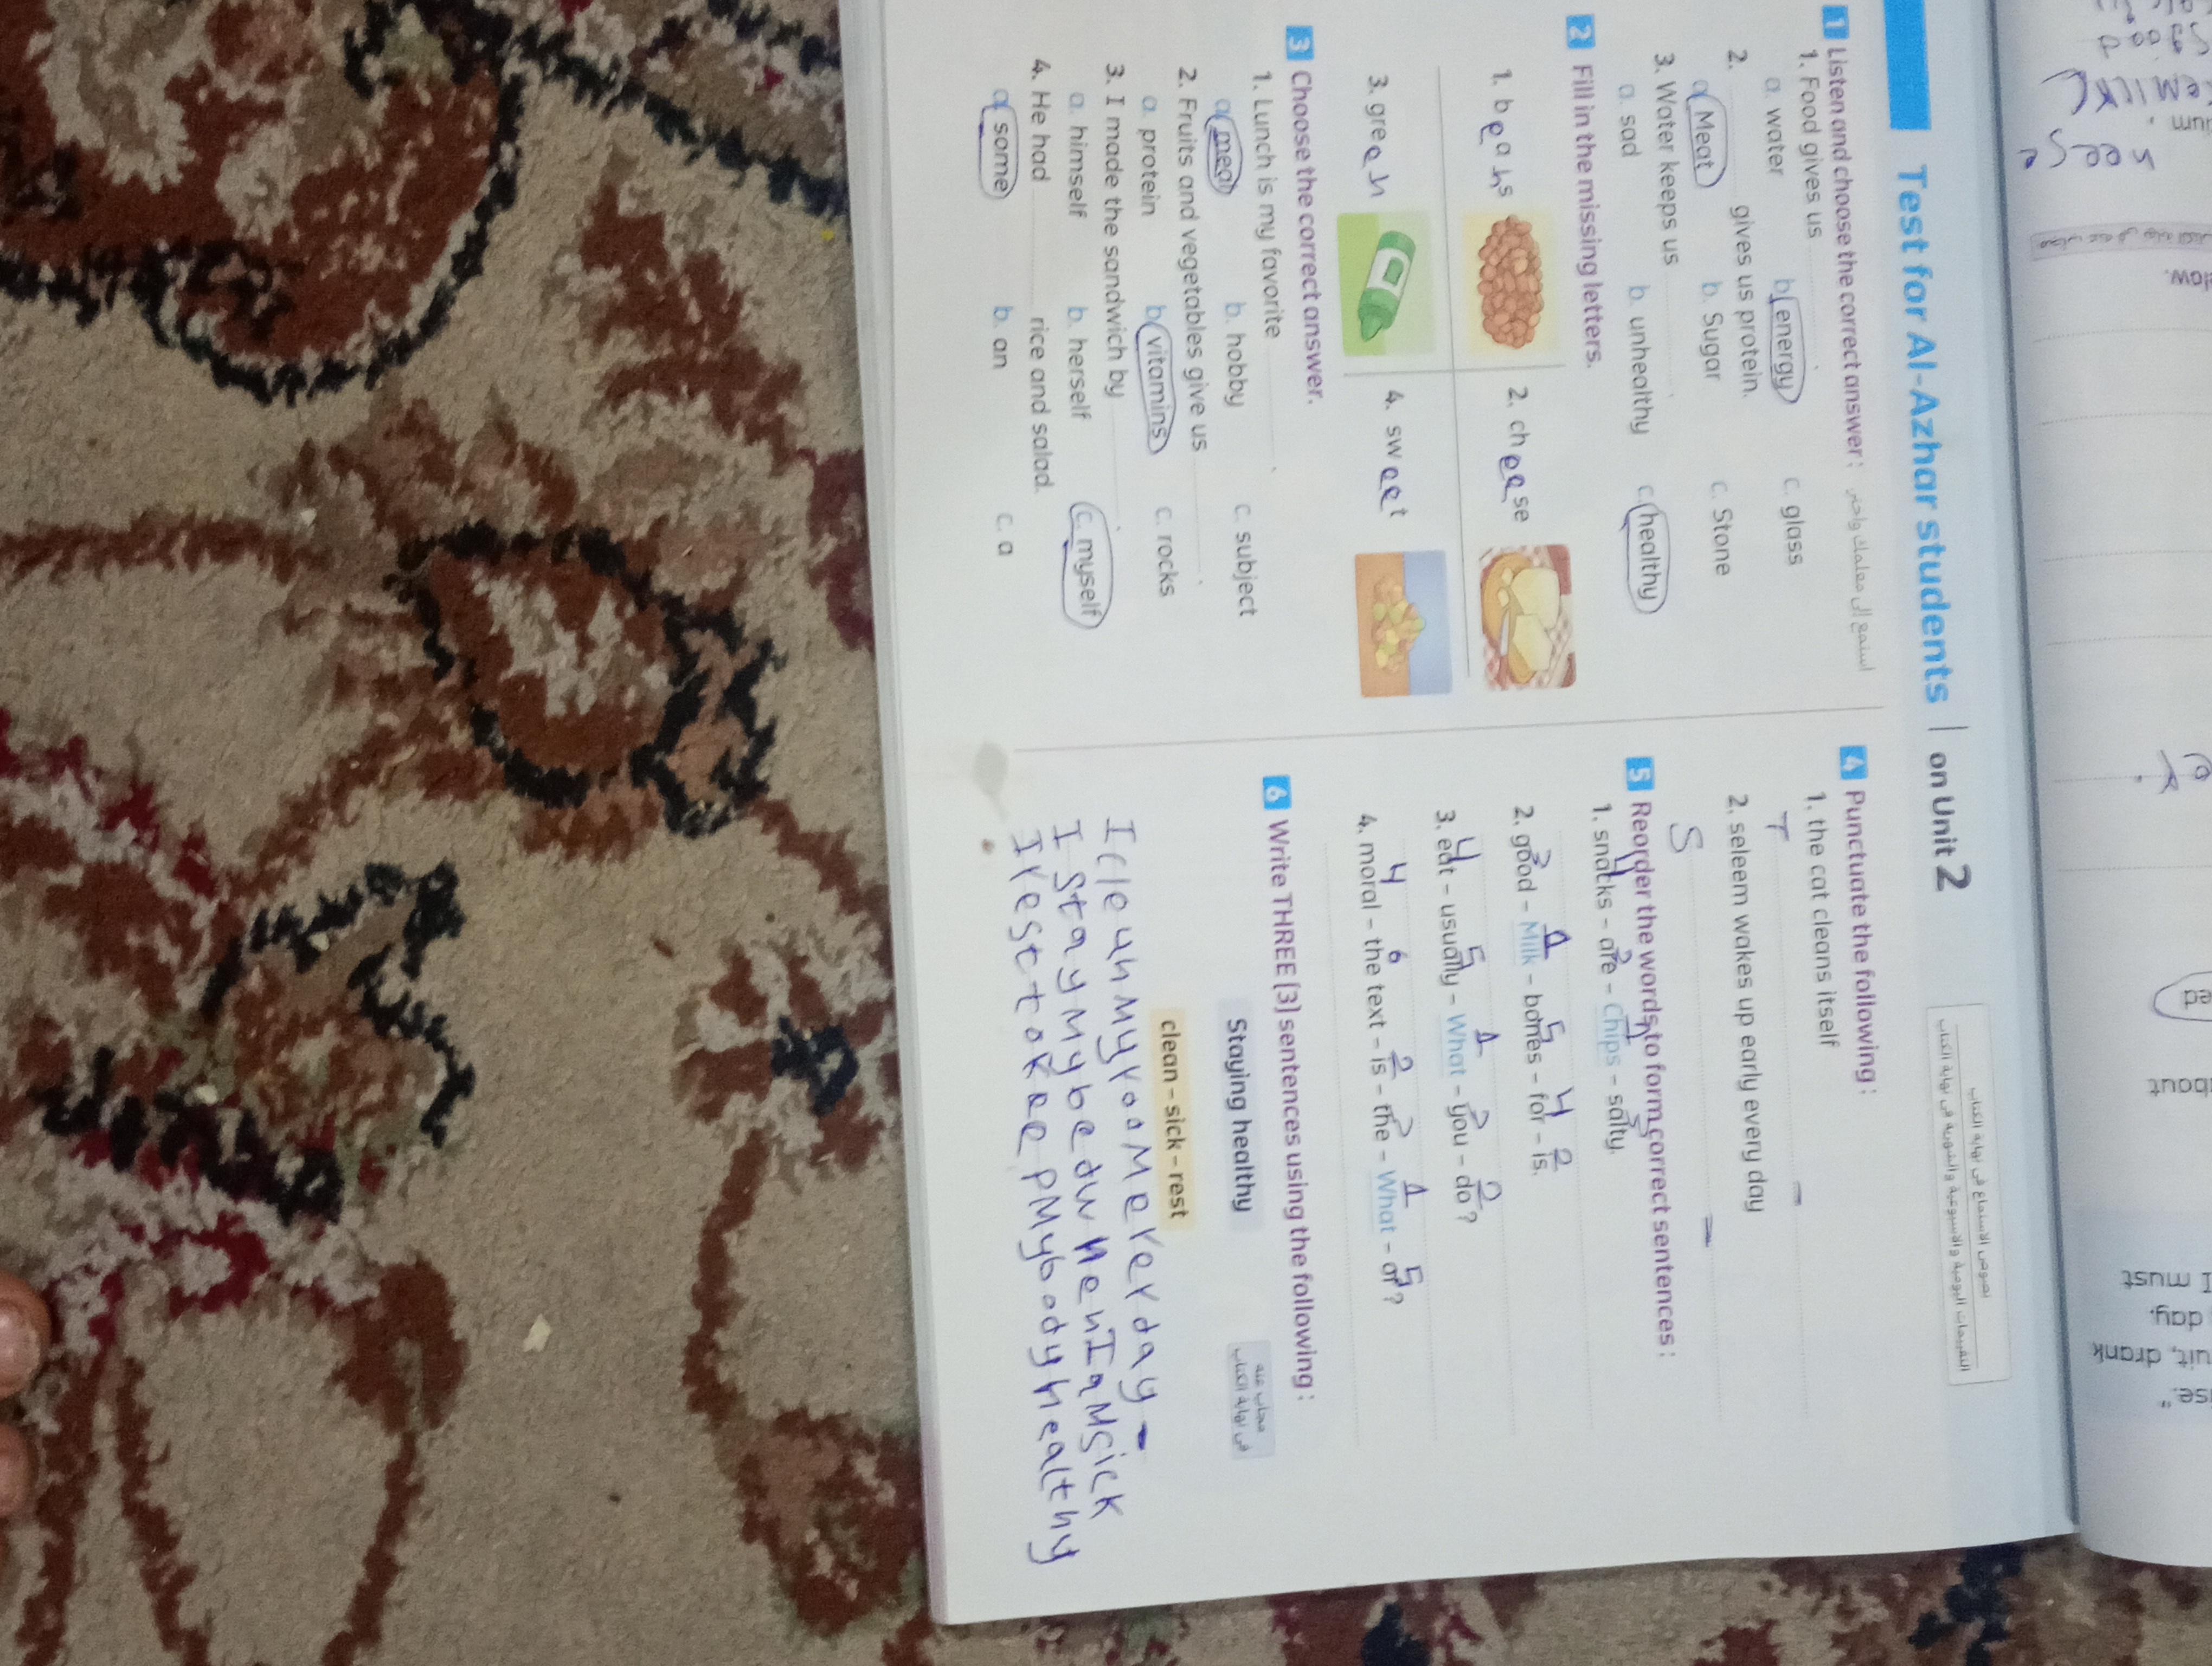 Test for Al-Azhar students | on Unit 2
نصوص الاستماع فى نهاية الكتاب
التقييمات اليومية والأسبوعية والشهرية فى نهاية الكتاب
1 Listen and choose the correct answer :
1. Food gives us
a. water b. energy c. glass
2. gives us protein.
a. Meat b. Sugar c. Stone
3. Water keeps us
a. sad b. unhealthy c. healthy
2 Fill in the missing letters.
1. beans
2. cheese
3. green
4. sweet
3 Choose the correct answer.
1. Lunch is my favorite
a. meal b. hobby c. subject
2. Fruits and vegetables give us
a. protein b. vitamins c. rocks
3. I made the sandwich by
a. himself b. herself c. myself
4. He had rice and salad.
a. some b. an c. a
4 Punctuate the following :
1. the cat cleans itself
T
2. seleem wakes up early every day
S
5 Reorder the words to form correct sentences :
1. snacks – are – Chips – salty.
2. good – Milk – bones – for – is.
3. eat – usually – What – you – do ?
4. moral – the text – is – the – What – of ?
6 Write THREE (3) sentences using the following :
Staying healthy
مجاب عنه
فى نهاية الكتاب
clean – sick – rest
I clean My rooM every day -
I stay My bed when I aM sick
I rest to keep My body healthy
about
I must
day,
drank